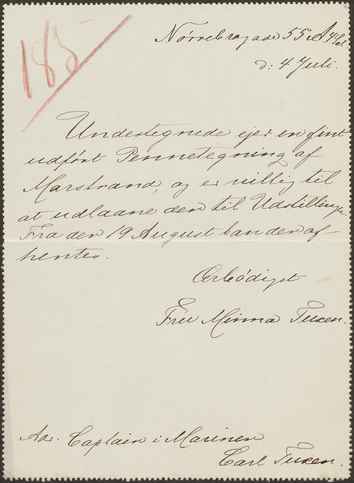 185
Nørrebrogade 55 A 4 Sal
d: 4 Juli.
Undertegnede ejer en fint
udført Pennetegning af
Marstrand, og er villig til
at udlaane den til Udstillingen
Fra den 19 August kan den af-
hentes.
Ærbødigst
Fru Minna Tuxen.
Adr. Captain i Marinen
Carl Tuxen.